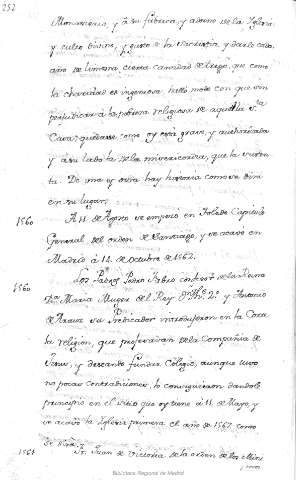 252
Monasterio, y à su fabrica, y adorno de la Iglesia
y culto Divino, y gasto de la Sachristia, y darle cada
año de limosna cierta cantidad de trigo, que como
la charidad es ingeniosa halló modo con que sin
perjudicar à la pobreza religiosa de aquella Sta
Casa quedasse como oy està grave, y authorizada
y à su lado la de la misericordia, que la susten-
ta. De una y otra hay historia como se dirà
en su lugar.
1560 A 11. de Agosto se empezo en Toledo Capitulo
General del orden de Santiago, y se acavò en
Madrid à 12. de Octubre de 1562.
1560 Los Padres Pedro Fabro de la Reina
Da. Maria Muger del Rey Dn. Ph. 2o. y Antonio
de Araoz su Predicador introdujeron en la Corte
la religion, que professavan de la Compañia de
Jesus, y deseando fundar Colegio, aunque tuvo
no pocas contradiciones, lo consiguieron dandole
principio en el sitio que oy tiene à 11. de Mayo, y
se acavò la Iglesia primera el año de 1567 como
se dirà.
1561 Fr. Juan de Victoria de la orden de los Mini-
Biblioteca Regional de Madrid